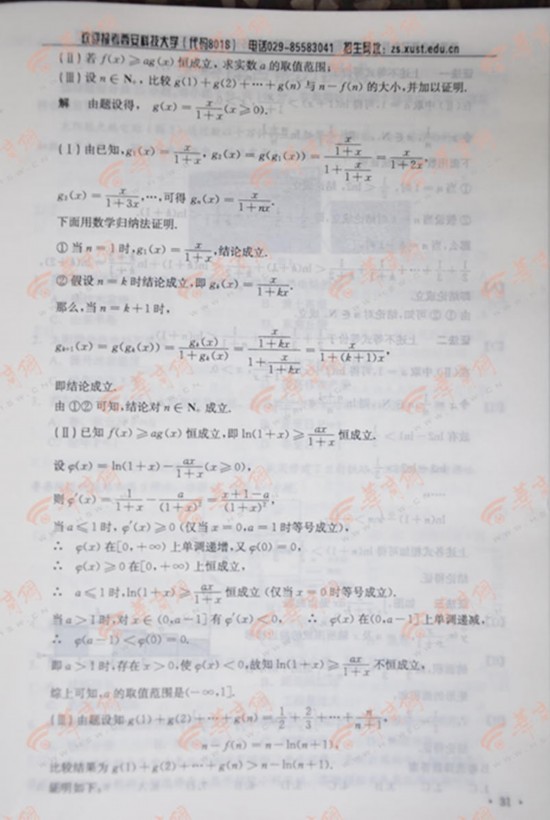 欢迎报考西安科技大学(代码8018) 电话029-85583041 招生网址:zs.xust.edu.cn
(Ⅱ)若 f(x)≥ag(x)恒成立,求实数 a 的取值范围;
(Ⅲ)设 n∈N₊,比较 g(1)+g(2)+…+g(n)与 n-f(n)的大小,并加以证明.
解 由题设得, g(x)=x/(1+x)(x≥0).
(Ⅰ)由已知,g₁(x)=x/(1+x), g₂(x)=g(g₁(x))=(x/(1+x))/(1+x/(1+x))=x/(1+2x),
g₃(x)=x/(1+3x),…,可得 gₙ(x)=x/(1+nx).
下面用数学归纳法证明.
①当 n=1 时,g₁(x)=x/(1+x),结论成立.
②假设 n=k 时结论成立,即 gₖ(x)=x/(1+kx).
那么,当 n=k+1 时,
gₖ₊₁(x)=g(gₖ(x))=gₖ(x)/(1+gₖ(x))=(x/(1+kx))/(1+x/(1+kx))=x/(1+(k+1)x),
即结论成立.
由①②可知,结论对 n∈N₊ 成立.
(Ⅱ)已知 f(x)≥ag(x)恒成立,即 ln(1+x)≥ax/(1+x) 恒成立.
设 φ(x)=ln(1+x)-ax/(1+x)(x≥0),
则 φ′(x)=1/(1+x)-a/(1+x)²=(x+1-a)/(1+x)²,
当 a≤1 时,φ′(x)≥0(仅当 x=0,a=1 时等号成立),
∴ φ(x)在[0,+∞)上单调递增,又 φ(0)=0,
∴ φ(x)≥0 在[0,+∞)上恒成立,
∴ a≤1 时,ln(1+x)≥ax/(1+x) 恒成立(仅当 x=0 时等号成立).
当 a>1 时,对 x∈(0,a-1]有 φ′(x)<0, ∴ φ(x)在(0,a-1]上单调递减,
∴ φ(a-1)<φ(0)=0.
即 a>1 时,存在 x>0,使 φ(x)<0,故知 ln(1+x)≥ax/(1+x) 不恒成立,
综上可知,a 的取值范围是(-∞,1].
(Ⅲ)由题设知 g(1)+g(2)+…+g(n)=1/2+2/3+…+n/(n+1),
n-f(n)=n-ln(n+1),
比较结果为 g(1)+g(2)+…+g(n)>n-ln(n+1).
证明如下:
· 31 ·